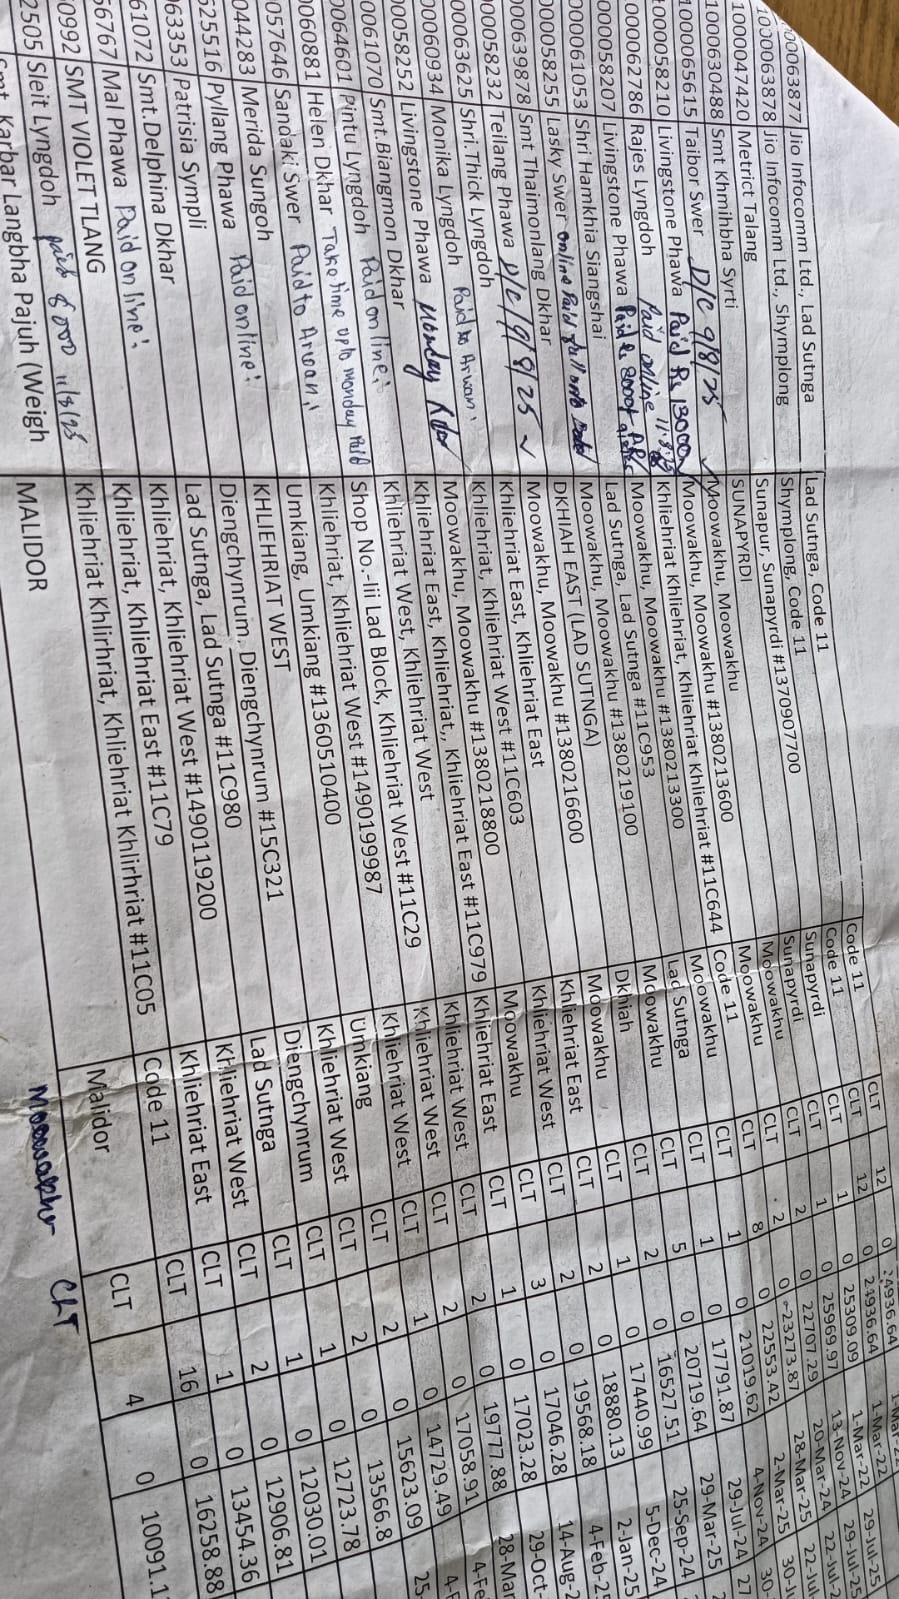 00063877 Jio Infocomm Ltd., Lad Sutnga Lad Sutnga, Code 11 Code 11 CLT 12 0 24936.64 1-Mar-22
63878 Jio Infocomm Ltd., Shymplong Shymplong, Code 11 Code 11 CLT 12 0 24936.64 1-Mar-22 29-Jul-25
1000047420 Metrict Talang Sunapur, Sunapyrdi #1370907700 Sunapyrdi CLT 1 0 25309.09 13-Nov-24 29-Jul-25
1000630488 Smt Khmihbha Syrti SUNAPYRDI Sunapyrdi CLT 1 0 25969.97 20-Mar-24 22-Jul-2
1000065615 Taibor Swer D/C 9/8/25 Moowakhu, Moowakhu Moowakhu CLT 2 0 22707.29 28-Mar-25 22-Jul-
1000058210 Livingstone Phawa Paid Rs 13000/ Moowakhu, Moowakhu #1380213600 Moowakhu CLT 2 0 23273.87 2-Mar-25 30-Ju
000062786 Rajes Lyngdoh Paid online 11.8.25 Khliehriat Khliehriat, Khliehriat Khliehriat #11C644 Code 11 CLT 8 0 22553.42 4-Nov-24 30-
000058207 Livingstone Phawa Paid Moowakhu, Moowakhu #1380213300 Moowakhu CLT 1 0 21019.62 29-Jul-24 27
000061053 Shri Hamkhia Siangshai Lad Sutnga, Lad Sutnga #11C953 Lad Sutnga CLT 1 0 17791.87 29-Mar-25
000058255 Lasky Swer online Paid Moowakhu, Moowakhu #1380219100 Moowakhu CLT 5 0 20719.64 25-Sep-24
000639878 Smt Thaimonlang Dkhar DKHIAH EAST (LAD SUTNGA) Dkhiah CLT 2 0 16527.51 5-Dec-24
00058232 Teilang Phawa D/C 9/8/25 Moowakhu, Moowakhu #1380216600 Moowakhu CLT 1 0 17440.99 2-Jan-25
00063625 Shri.Thick Lyngdoh Khliehriat East, Khliehriat East Khliehriat East CLT 2 0 18880.13 4-Feb-25
00060934 Monika Lyngdoh Paid to Arwan' Khliehriat, Khliehriat West #11C603 Khliehriat West CLT 2 0 19568.18 14-Aug-2
00058252 Livingstone Phawa Monday Moowakhu, Moowakhu #1380218800 Moowakhu CLT 3 0 17046.28 29-Oct-
00061070 Smt.Biangmon Dkhar Khliehriat East, Khliehriat,, Khliehriat East #11C979 Khliehriat East CLT 1 0 17023.28 28-Mar
0064601 Pintu Lyngdoh Paid on line! Khliehriat West, Khliehriat West Khliehriat West CLT 2 0 19777.88 4-Fe
0060881 Helen Dkhar Take time upto Monday Paid Shop No.-Iii Lad Block, Khliehriat West #11C29 Khliehriat West CLT 2 0 17058.91 4-F
057646 Sandaki Swer Paid to Arwan! Khliehriat, Khliehriat West #1490199987 Khliehriat West CLT 1 0 14729.49 25-
044283 Merida Sungoh Umkiang, Umkiang #1360510400 Umkiang CLT 2 0 15623.09
25516 Pyllang Phawa Paid on line! KHLIEHRIAT WEST Khliehriat West CLT 2 0 13566.8
63353 Patrisia Sympli Diengchynrum, Diengchynrum #15C321 Diengchynrum CLT 1 0 12723.78
61072 Smt.Delphina Dkhar Lad Sutnga, Lad Sutnga #11C980 Lad Sutnga CLT 1 0 12030.01
66767 Mal Phawa Paid on line! Khliehriat, Khliehriat West #1490119200 Khliehriat West CLT 2 0 12906.81
0992 SMT VIOLET TLANG Khliehriat, Khliehriat East #11C79 Khliehriat East CLT 1 0 13454.36
2505 Sleit Lyngdoh paid 8000 11/8/25 Khliehriat Khlirhriat, Khliehriat Khlirhriat #11C05 Code 11 CLT 16 0 16258.88
Karbar Langbha Pajuh (Weigh MALIDOR Malidor CLT 4 0 10091.1
Moowakhu CLT